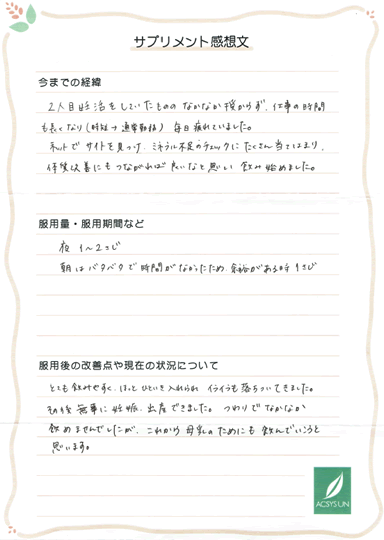 サプリメント感想文
今までの経緯
2人目妊活をしていたものの なかなか授からず、仕事の時間
も長くなり(時短→通常勤務) 毎日疲れていました。
ネットで サイトを見つけ、ミネラル不足のチェックに たくさん当てはまり、
体質改善にも つながれば良いなと思い 飲み始めました。
服用量・服用期間など
夜 1〜2さじ
朝は バタバタで 時間がなかったため、余裕がある時 1さじ
服用後の改善点や現在の状況について
とても飲みやすく、ほっと ひといき入れられ イライラも落ちついてきました。
その後 無事に 妊娠、出産できました。 つわりで なかなか
飲めませんでしたが、これから 母乳のためにも 飲んでいこうと
思います。
ACSYSUN